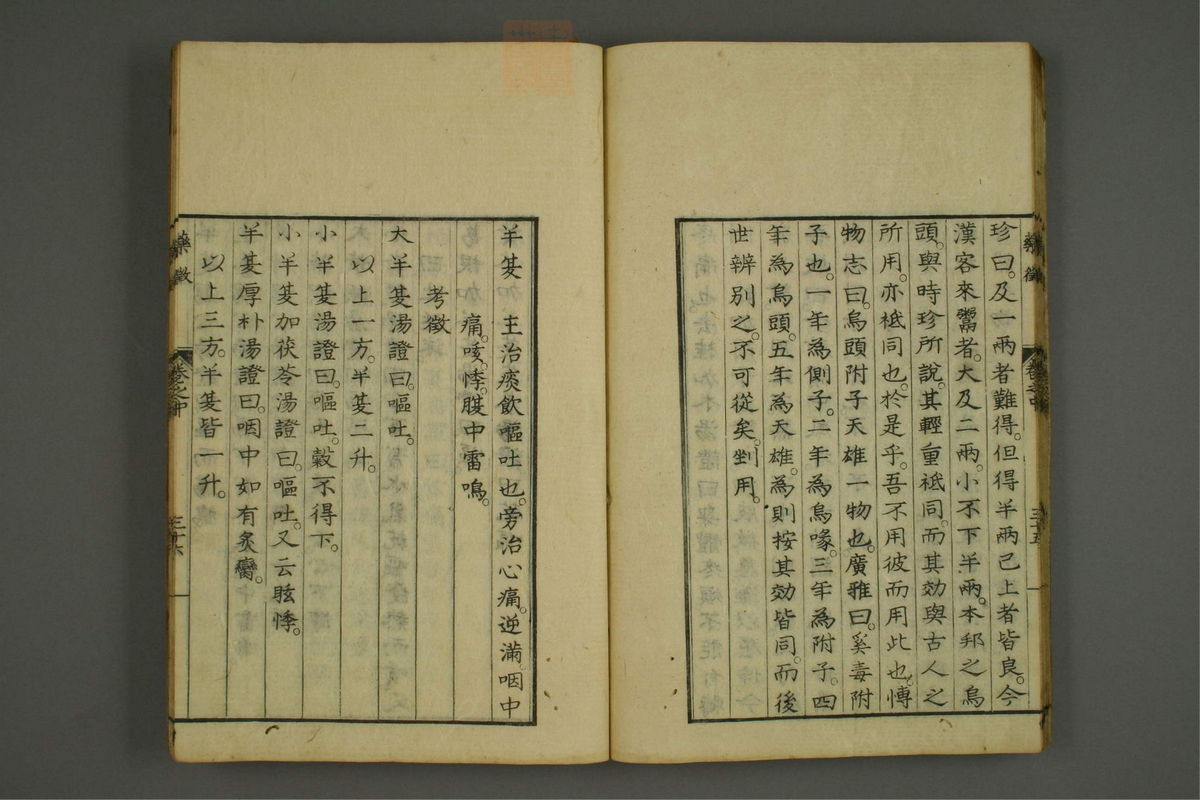 珍曰。及一兩者難得。但得半兩已上者皆良。今
漢客來鬻者。大及二兩。小不下半兩。本邦之烏
頭。與時珍所說。其輕重祗同。而其効與古人之
所用。亦祗同也。於是乎。吾不用彼而用此也。慱
物志曰。烏頭附子天雄一物也。廣雅曰。奚毒附
子也。一年為側子。二年為烏喙。三年為附子。四
年為烏頭。五年為天雄。為則按其効皆同。而後
世辨別之。不可從矣。剉用。
藥徵
卷之中
三十五
半夏 主治痰飲嘔吐也。旁治心痛。逆滿。咽中
痛。咳。悸。腹中雷鳴。
考徵
大半夏湯證曰。嘔吐。
以上一方。半夏二升。
小半夏湯證曰。嘔吐。穀不得下。
小半夏加茯苓湯證曰。嘔吐。又云眩悸。
半夏厚朴湯證曰。咽中如有炙臠。
以上三方。半夏皆一升。
藥徵
卷之中
三十六